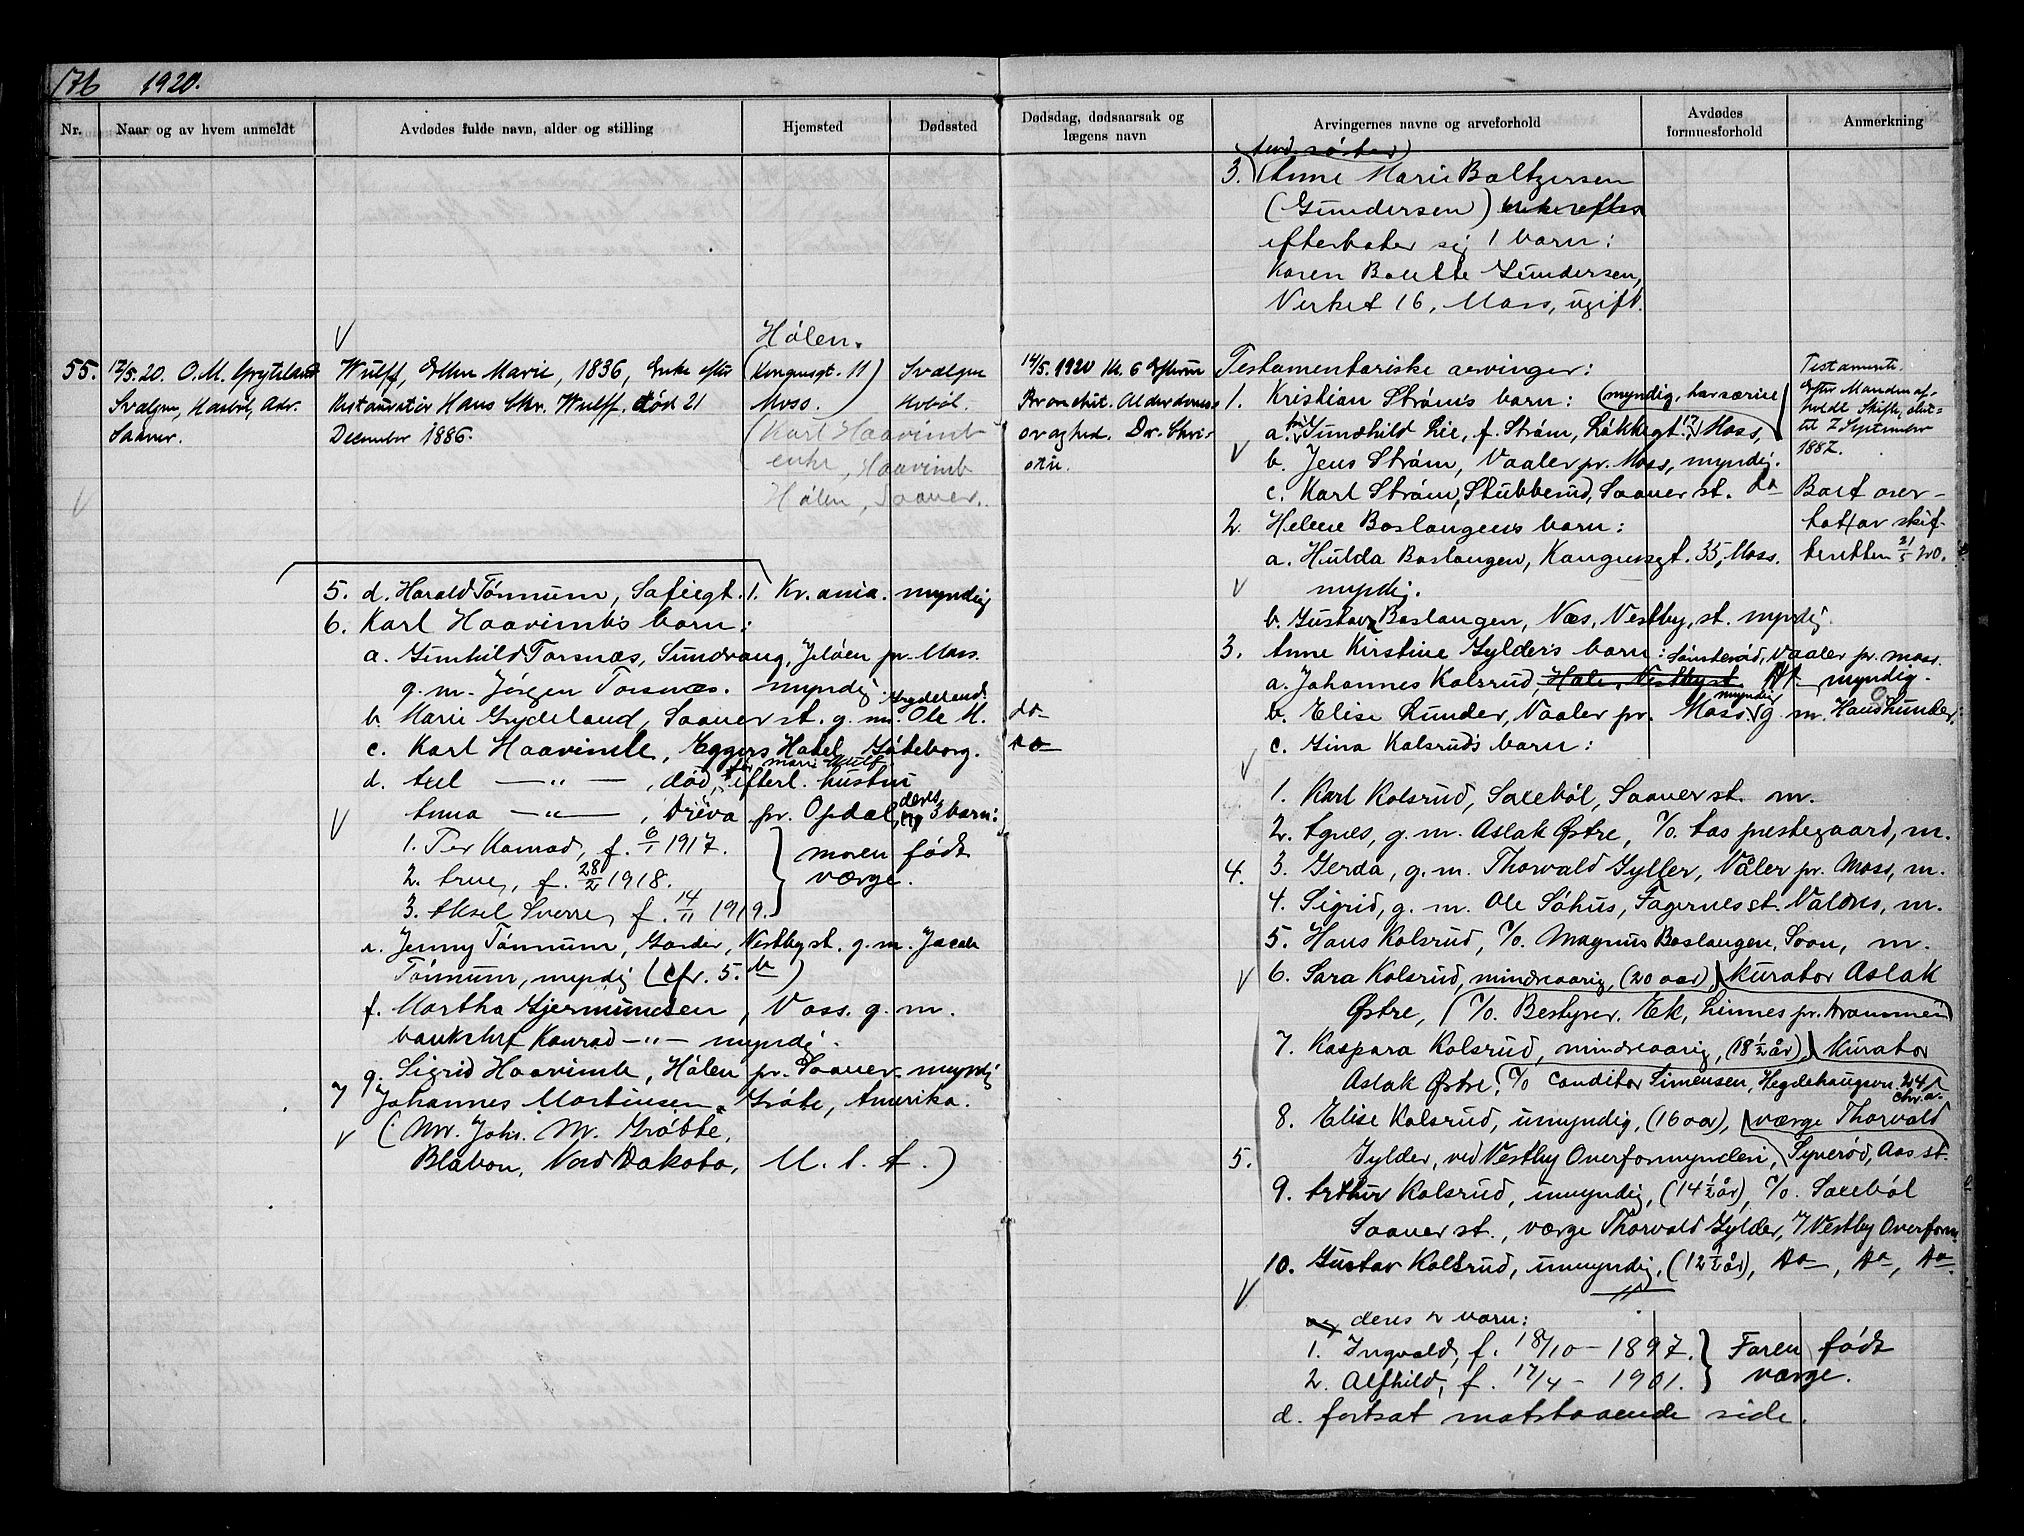 176 1920.
Nr. Naar og av hvem anmeldt Avdødes fulde navn, alder og stilling Hjemsted Dødssted Dødsdag, dødsaarsak og lægens navn Arvingernes navne og arveforhold Avdødes formuesforhold Anmerkning
søster)
3. Anne Marie Baltzersen
(Gundersen)
efterlater sig 1 barn:
Karen Boletте Gundersen,
Verket 16, Moss, ugift.
55. 17/5.20. O.M. Grydeland
Svalgen, Haabøl, Adr.
Saaner.
Wulff, Ellen Marie, 1836, Enke efter
Restauratør Hans Chr. Wulff. død 21
December 1886.
Hølen.
(Kongensgt. 11)
Moss.
(Karl Haavimb
enke, Haavimb
Hølen, Saaner.
Svalgen
Hobøl.
14/5.1920 Kl 6 Efterm
Bronchit. Alderdoms-
svaghed. Dr. Chri-
stie.
Testamentariske arvinger:
1. Kristian Strøms barn: (myndig, har særeie)
a. fru Gunhild Lie, f. Strøm, Løkkegt. 17, Moss,
b. Jens Strøm, Vaaler pr. Moss, myndig.
c. Karl Strøm, Stubberud, Saaner st. do
2. Helene Boslangens barn:
a. Hulda Boslangen, Kongensgt. 35, Moss.
myndig.
b. Gustav Boslangen, Næs, Vestby, st. myndig.
3. Anne Kirstine Gylders barn: Sønsterød, Vaaler pr. Moss.
a. Johannes Kolsrud, Hale, Vestby st. myndig.
b. Elise Lunder, Vaaler pr. Moss, myndig g. m. Hans Lunder,
c. Gina Kolsruds barn:
1. Karl Kolsrud, Saxebøl, Saaner st. m.
2. Agnes, g. m. Aslak Østre, c/o. Aas prestegaard, m.
4. 3. Gerda, g. m. Thorvald Gyller, Våler pr. Moss, m.
4. Sigrid, g. m. Ole Søhus, Fagernes st. Valdres, m.
5. Hans Kolsrud, c/o. Magnus Boslangen, Soon, m.
6. Sara Kolsrud, mindreaarig, (20 aar), kurator Aslak
Østre, (c/o. Bestyrer Ek, Linnes pr. Drammen)
7. Kaspara Kolsrud, mindreaarig, (18 ½ år), kurator
Aslak Østre, c/o Conditor Simensen, Hegdehaugsvn. 24
Chr.a.
8. Elise Kolsrud, umyndig, (16 aar), værge Thorvald
5. Gylder, ved Vestby Overformynderi, Synerød, Aas st.
9. Arthur Kolsrud, umyndig, (14 ½ år), c/o. Saxebøl
Saaner st., værge Thorvald Gylder, / Vestby Overform.
10. Gustav Kolsrud, umyndig, (12 ½ år), do, do, do.
og deres 2 barn:
1. Ingvald, f. 18/10 - 1897.
2. Alfhild, f. 17/4 - 1901.
Faren født
værge.
d. fortsat motstaaende side.
Testamente.
Efter Manden af-
holdt Skifte, slut-
tet 7 September
1887.
Boet over-
tat av skif-
teretten 21/5 20.
5. d. Harald Tønnum, Sofiegt. 1. Kr.ania. myndig
6. Karl Haavimb's barn:
a. Gunhild Torsnæs, Sundvang, Jeløen pr. Moss.
g. m. Jørgen Torsnæs. myndig.
b. Marie Grydeland, Saaner st. g. m. Ole M. Grydeland. do
c. Karl Haavimb, Eggers Hotel, Göteborg. do
d. Axel — " — , død, efterl. hustru
Anna — " — , Driva pr. Opdal, og deres 3 barn:
1. Per Konrad, f. 6/1 1917.
2. Arne, f. 28/2 1918.
3. Aksel Sverre, f. 14/11 1919.
moren født
værge.
e. Jenny Tønnum, Garder, Vestby st. g. m. Jacob
Tønnum, myndig (cfr. 5. b)
f. Martha Gjermundsen, Voss. g. m.
bankchef Konrad — " — myndig.
g. Sigrid Haavimb, Hølen pr. Saaner. myndig
7 Johannes Martinsen Grøte, Amerika.
(Mr. Johs. M. Grøtte,
Blabon, Nord Dakota, U. S. A.)